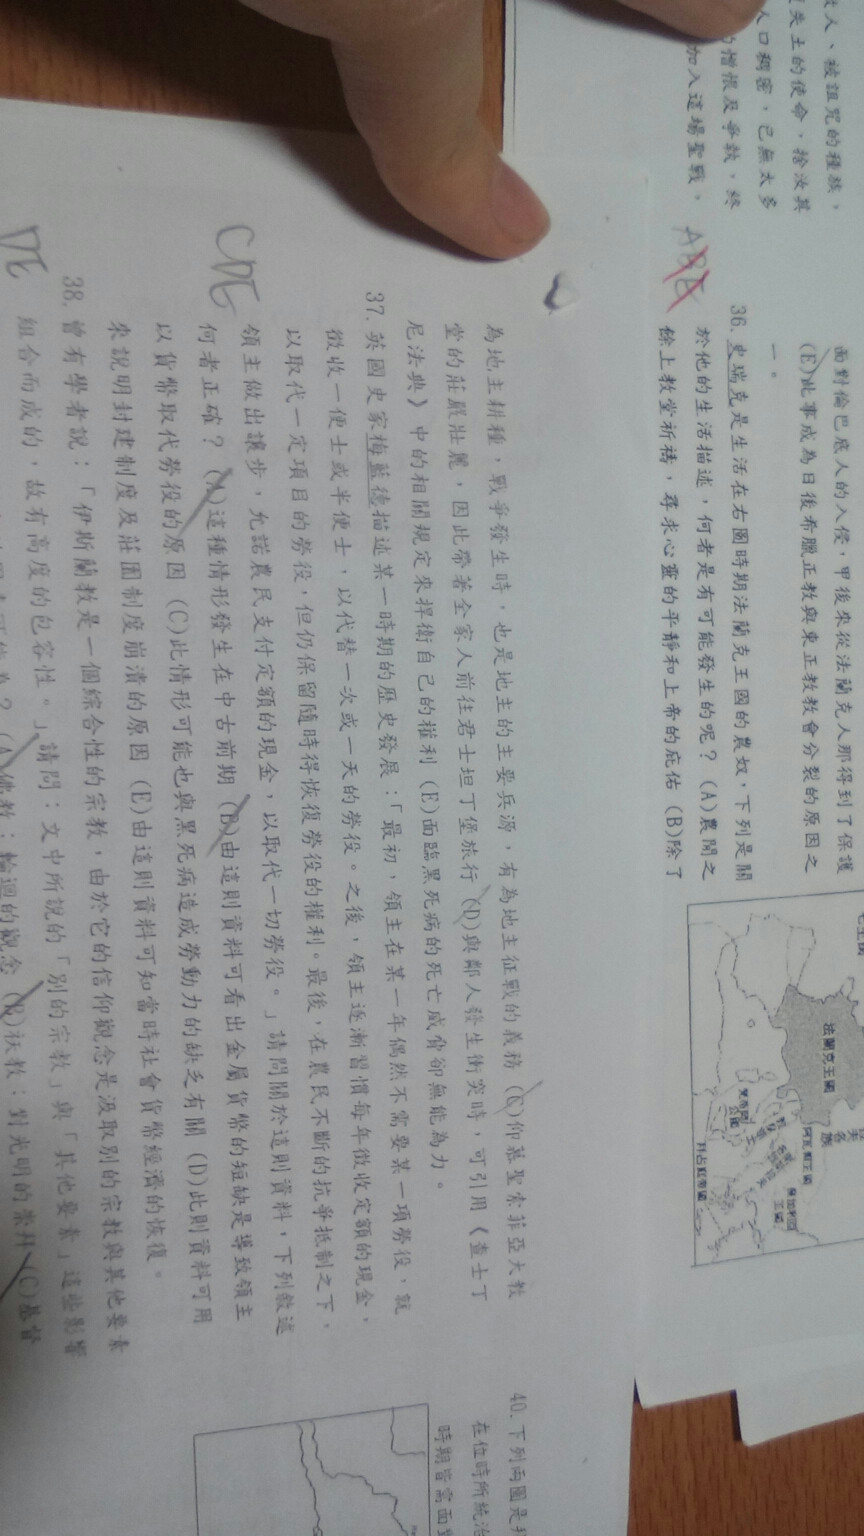 敵人、被詛咒的種族，
失土的使命，捨汝其
人口稠密，已無太多
憎恨及爭執，終
加入這場聖戰，
面對倫巴底人的入侵，甲後來從法蘭克人那得到了保護
(E)此事成為日後希臘正教與東正教教會分裂的原因之
一。
ABE
36. 史瑞克是生活在右圖時期法蘭克王國的農奴，下列是關
於他的生活描述，何者是有可能發生的呢？(A)農閒之
餘上教堂祈禱，尋求心靈的平靜和上帝的庇佑 (B)除了
法蘭克王國
阿瓦爾王國
保加利亞
王國
拜占庭帝國
為地主耕種，戰爭發生時，也是地主的主要兵源，有為地主征戰的義務 (C)仰慕聖索菲亞大教
堂的莊嚴壯麗，因此帶著全家人前往君士坦丁堡旅行 (D)與鄰人發生衝突時，可引用《查士丁
尼法典》中的相關規定來捍衛自己的權利 (E)面臨黑死病的死亡威脅卻無能為力。
CDE
37. 英國史家梅藍德描述某一時期的歷史發展：「最初，領主在某一年偶然不需要某一項勞役，就
徵收一便士或半便士，以代替一次或一天的勞役。之後，領主逐漸習慣每年徵收定額的現金，
以取代一定項目的勞役，但仍保留隨時得恢復勞役的權利。最後，在農民不斷的抗爭抵制之下，
領主做出讓步，允諾農民支付定額的現金，以取代一切勞役。」請問關於這則資料，下列敘述
何者正確？(A)這種情形發生在中古前期 (B)由這則資料可看出金屬貨幣的短缺是導致領主
以貨幣取代勞役的原因 (C)此情形可能也與黑死病造成勞動力的缺乏有關 (D)此則資料可用
來說明封建制度及莊園制度崩潰的原因 (E)由這則資料可知當時社會貨幣經濟的恢復。
DE
38. 曾有學者說：「伊斯蘭教是一個綜合性的宗教，由於它的信仰觀念是汲取別的宗教與其他要素
組合而成的，故有高度的包容性。」請問：文中所說的「別的宗教」與「其他要素」這些影響
(A)佛教：輪迴的觀念 (B)祆教：對光明的崇拜 (C)基督
40. 下列兩圖是
在位時所統治
時期皆需面